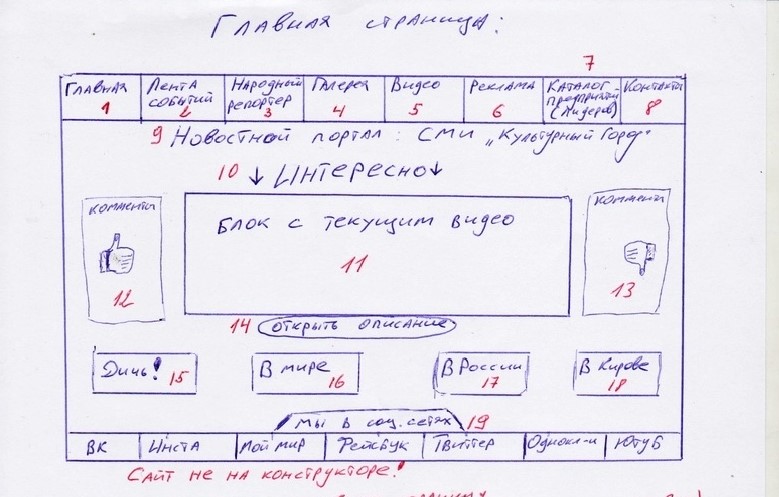 Главная страница:
7
Главная 1
Лента событий 2
Народный репортер 3
Галерея 4
Видео 5
Реклама 6
Каталог предприятий (Лидеров)
Контакты 8
9 Новостной портал: СМИ „Культурный Город"
10 ↓ Интересно ↓
комменты
12
Блок с текущим видео
11
комменты
13
14 открыть описание
Дичь! 15
В мире 16
В России 17
В Кирове 18
Мы в соц. сетях 19
ВК
Инста
Мой мир
Фейсбук
Твиттер
Однокл-и
Ютуб
Сайт не на конструкторе!